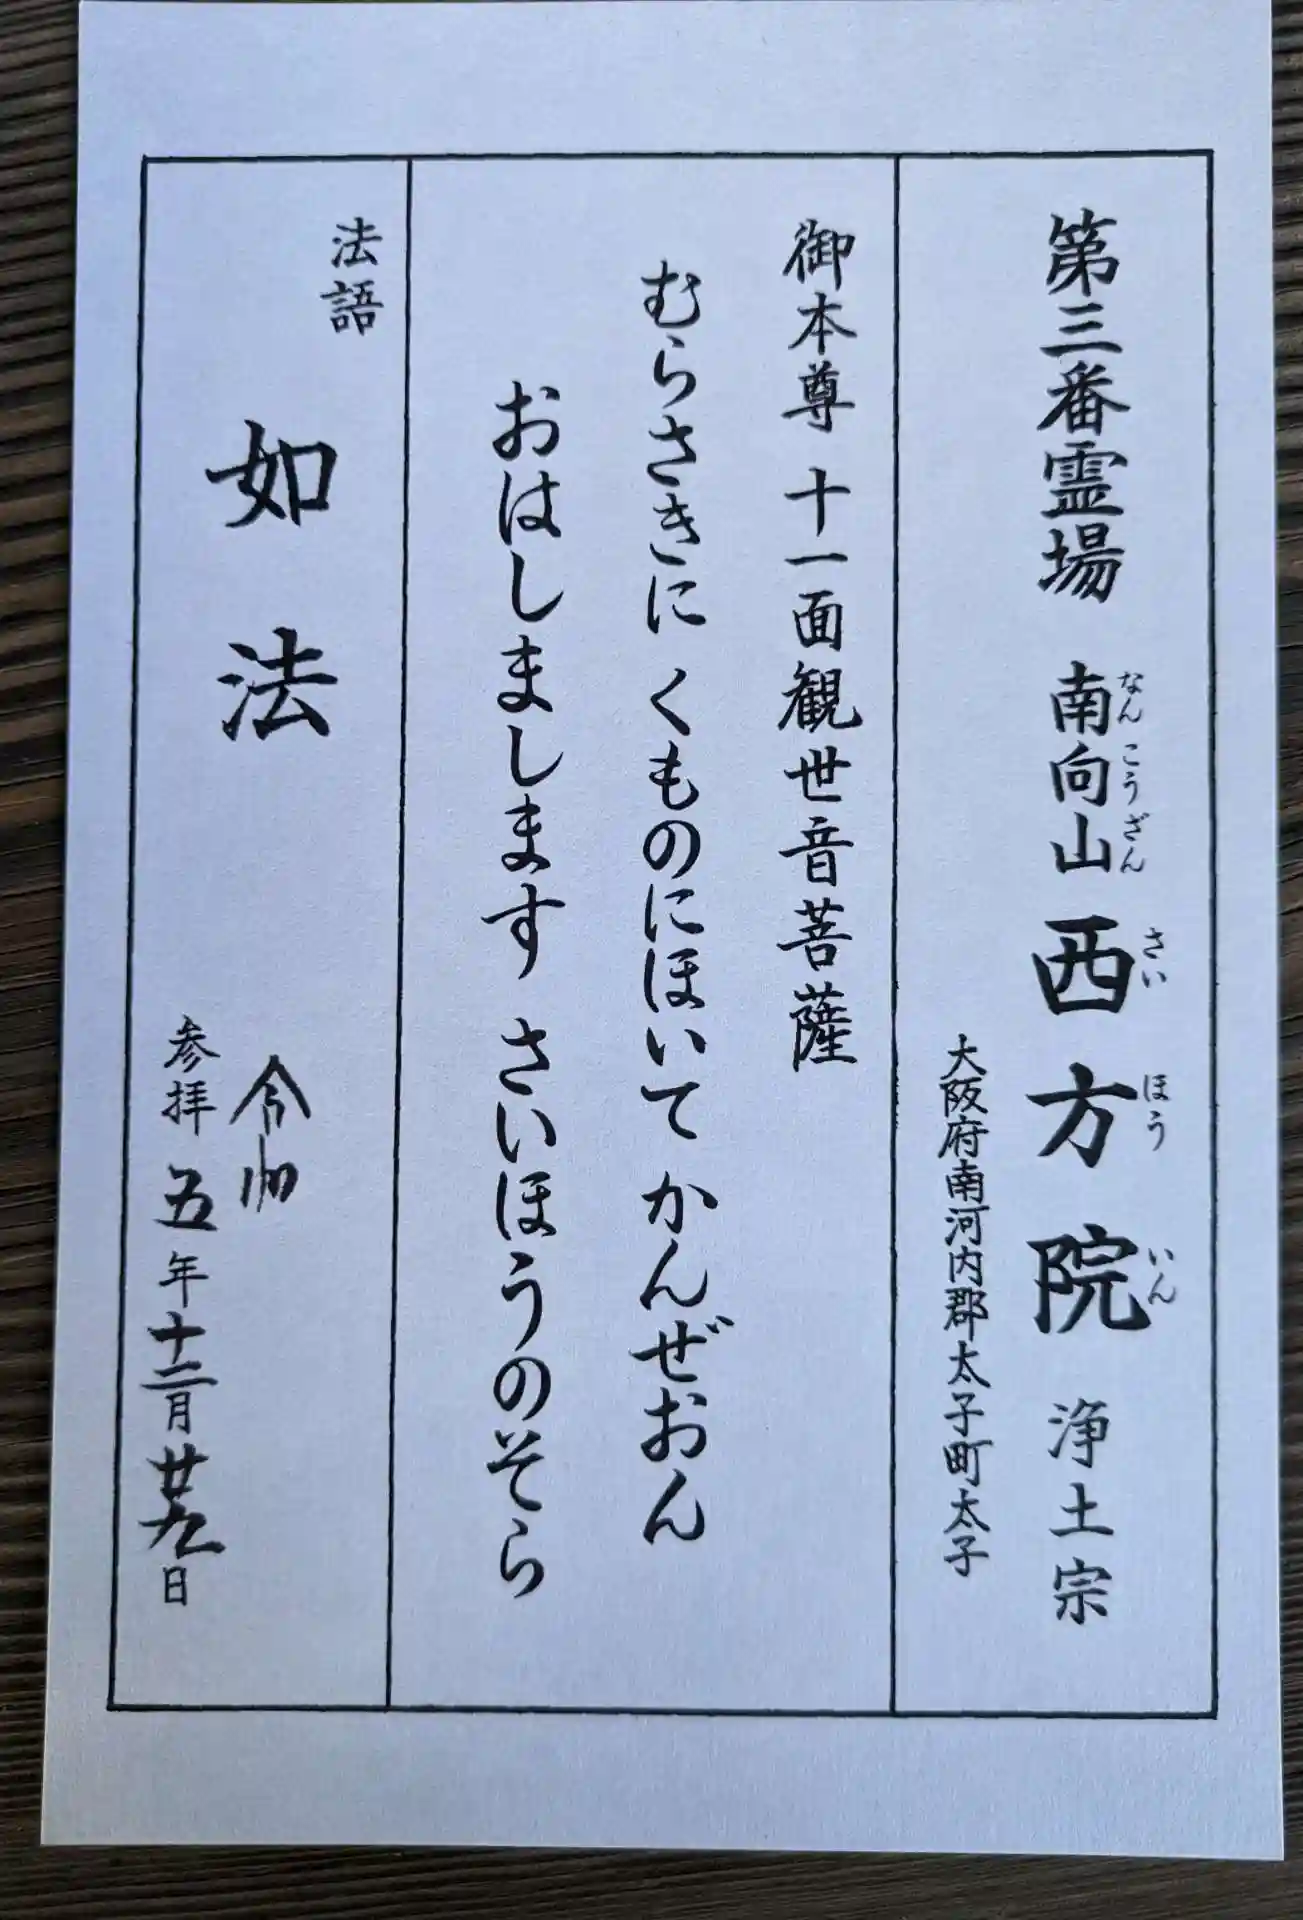 第三番霊場 南向山 西方院 浄土宗
なんこうざん さいほういん
大阪府南河内郡太子町太子
御本尊 十一面観世音菩薩
むらさきに くものにほいて かんぜおん
おはしまします さいほうのそら
法語
如法
令和
参拝 五年十二月廿九日